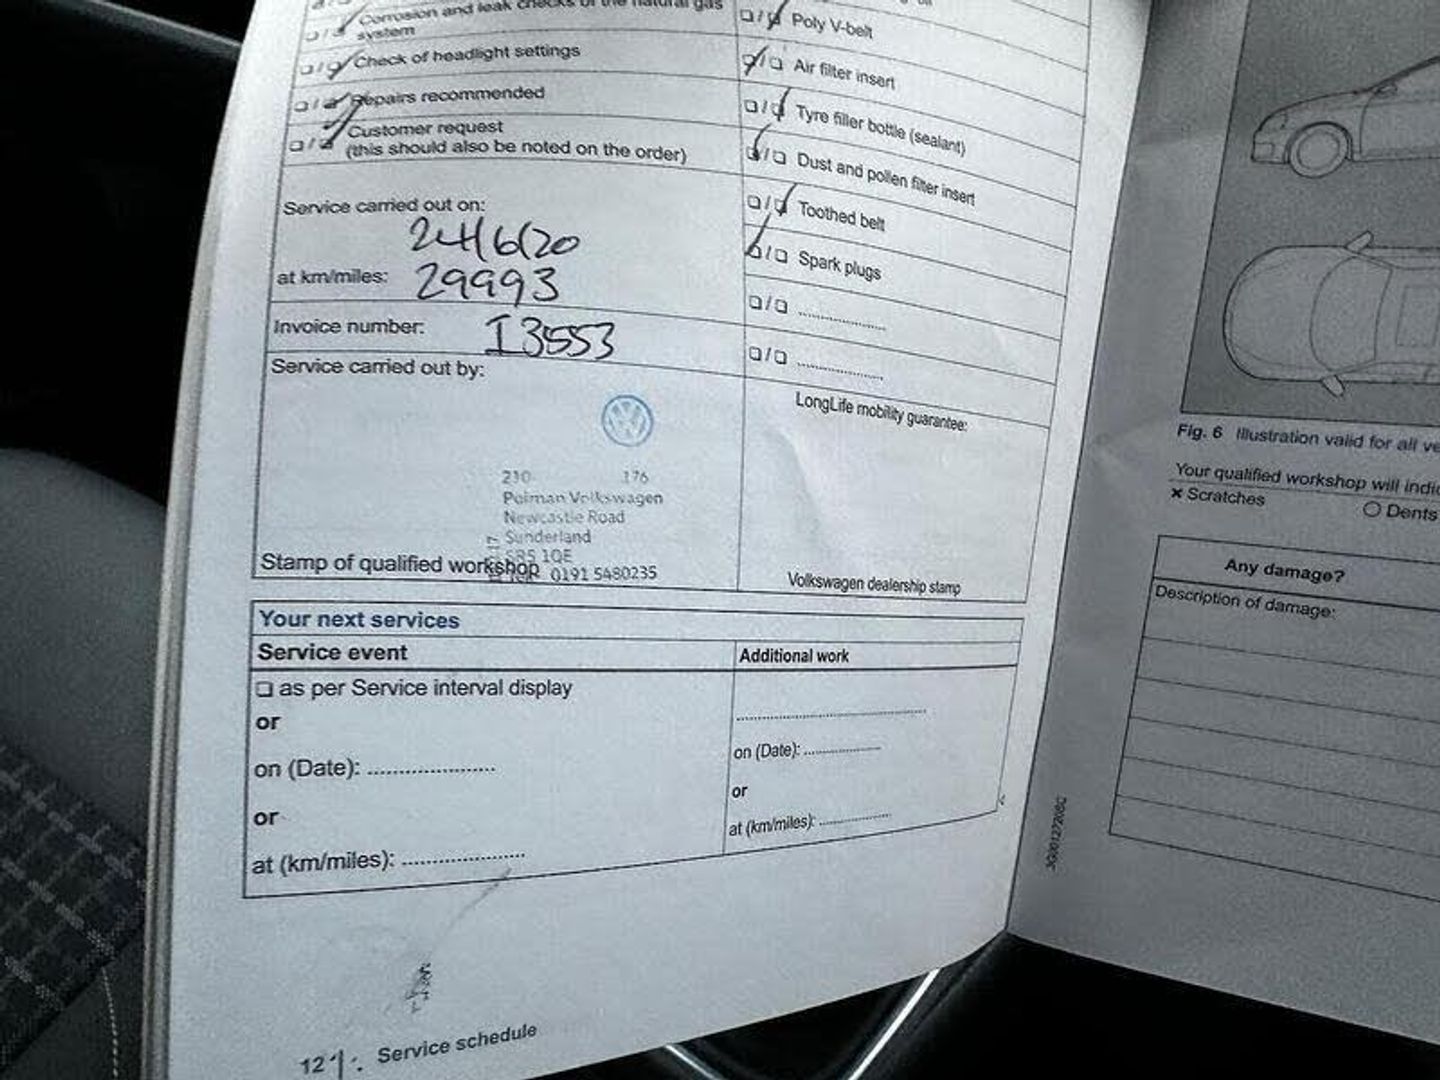 Corrosion and leak checks of the natural gas
system
Check of headlight settings
Repairs recommended
Customer request
(this should also be noted on the order)
Service carried out on:
24/6/20
at km/miles: 29993
Invoice number: I3553
Service carried out by:
210 176
Polman Volkswagen
Newcastle Road
Sunderland
SR5 1QE
0191 5480235
Stamp of qualified workshop
Poly V-belt
Air filter insert
Tyre filler bottle (sealant)
Dust and pollen filter insert
Toothed belt
Spark plugs
LongLife mobility guarantee:
Volkswagen dealership stamp
Your next services
Service event
as per Service interval display
or
on (Date):
or
at (km/miles):
Additional work
on (Date):
or
at (km/miles):
12 Service schedule
Fig. 6 Illustration valid for all
Your qualified workshop will
× Scratches
Dents
Any damage?
Description of damage: